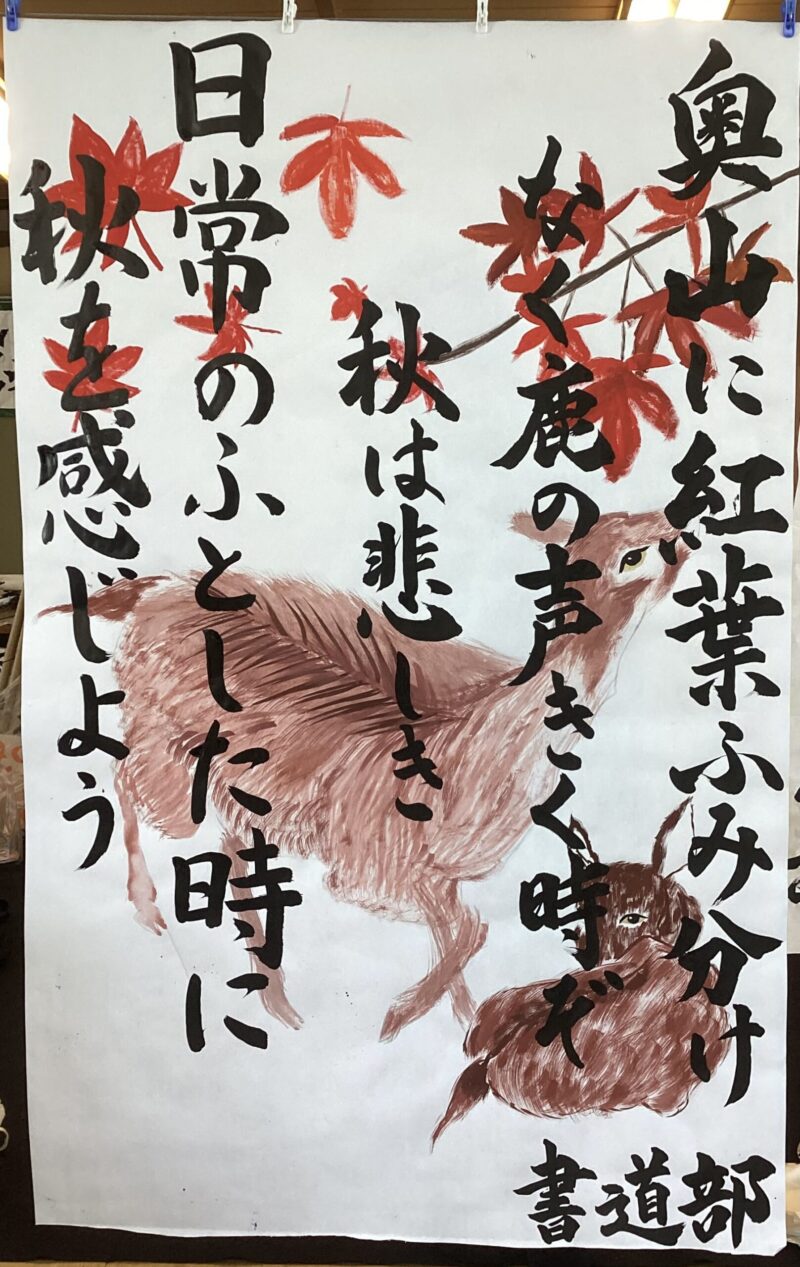 奥山に紅葉ふみ分け
なく鹿の声きく時ぞ
秋は悲しき
日常のふとした時に
秋を感じよう
書道部